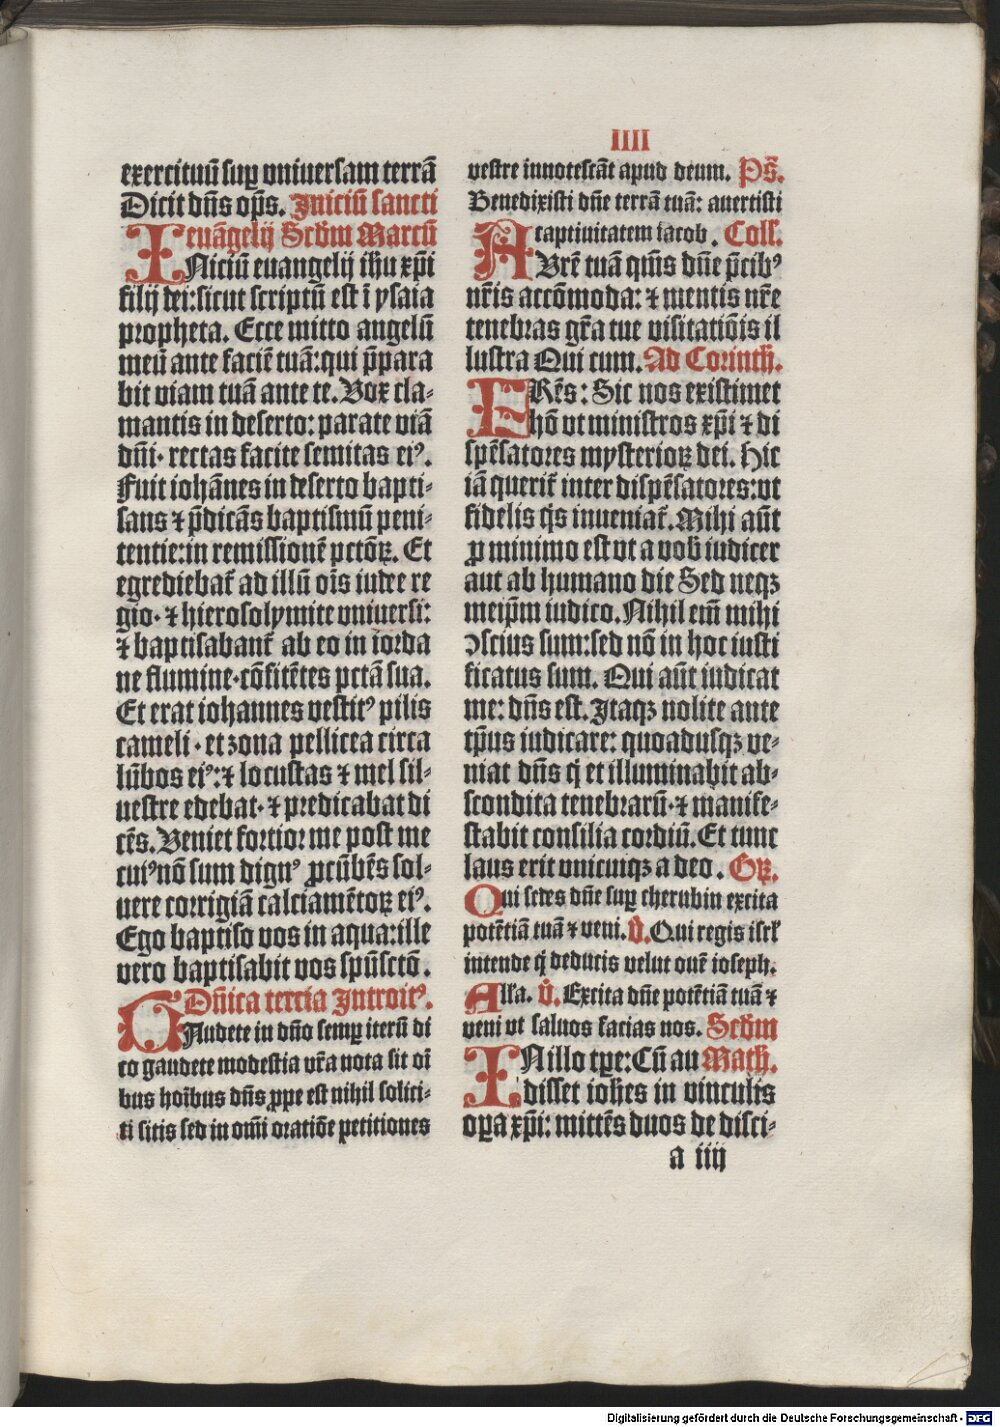 IIII
exercituū suꝑ vniuersam terrā
Dicit dn̄s op̄s. Iniciū sancti
euāgelij Scd̄m Marcū
INiciū euangelij ihu xp̄i
filij dei: sicut scriptū est ī ysaia
propheta. Ecce mitto angelū
meū ante faciē tuā: qui p̄para
bit viam tuā ante te. Vox cla-
mantis in deserto: parate viā
dn̄i. rectas facite semitas eiꝰ.
Fuit iohānes in deserto bapti-
sans ⁊ p̄dicās baptismū peni-
tentie: in remissionē pctōꝝ. Et
egrediebat̄ ad illū oīs iudee re
gio. ⁊ hierosolymite vniuersi:
⁊ baptisabant̄ ab eo in iorda
ne flumine. cōfitētes pctā sua.
Et erat iohannes vestitꝰ pilis
cameli. et zona pellicea circa
lūbos eiꝰ: ⁊ locustas ⁊ mel sil-
uestre edebat. ⁊ predicabat di
cēs. Veniet fortior me post me
cuiꝰ nō sum dignꝰ ꝓcūbēs sol-
uere corrigiā calciamētoꝝ eiꝰ.
Ego baptiso vos in aqua: ille
vero baptisabit vos spūsctō.
Dn̄ica tercia Introitꝰ.
GAudete in dn̄o semꝑ iterū di
co gaudete modestia vr̄a nota sit oī
bus hoībus dn̄s ꝓpe est nihil solici-
ti sitis sed in om̄i oratiōe petitiones
vestre innotescāt apud deum. Ps̄.
Benedixisti dn̄e terrā tuā: auertisti
captiuitatem iacob. Coll̄.
AVrē tuā qm̄s dn̄e p̄cibꝰ
nr̄is accōmoda: ⁊ mentis nr̄e
tenebras gr̄a tue visitatiōis il
lustra Qui cum. Ad Corinth̄.
FRēs: Sic nos existimet
hō vt ministros xp̄i ⁊ di
spēsatores mysterioꝝ dei. Hic
iā querit̄ inter dispēsatores: vt
fidelis q̄s inueniat̄. Mihi aūt
ꝓ minimo est vt a vob̄ iudicer
aut ab humano die Sed neqꝫ
meip̄m iudico. Nihil em̄ mihi
ↄscius sum: sed nō in hoc iusti
ficatus sum. Qui aūt iudicat
me: dn̄s est. Itaqꝫ nolite ante
tp̄us iudicare: quoadusqꝫ ve-
niat dn̄s q̄ et illuminabit ab-
scondita tenebrarū. ⁊ manife-
stabit consilia cordiū. Et tunc
laus erit vnicuiqꝫ a deo. Gꝝ.
Qui sedes dn̄e suꝑ cherubin excita
potētiā tuā ⁊ veni. V̄. Qui regis isrl̄
intende q̄ deducis velut ouē ioseph.
All̄a. V̄. Excita dn̄e potētiā tuā ⁊
veni vt saluos facias nos. Scd̄m
INillo tꝑe: Cū au Math̄.
disset ioh̄es in vinculis
oꝑa xp̄i: mittēs duos de disci-
a iiij
Digitalisierung gefördert durch die Deutsche Forschungsgemeinschaft - DFG